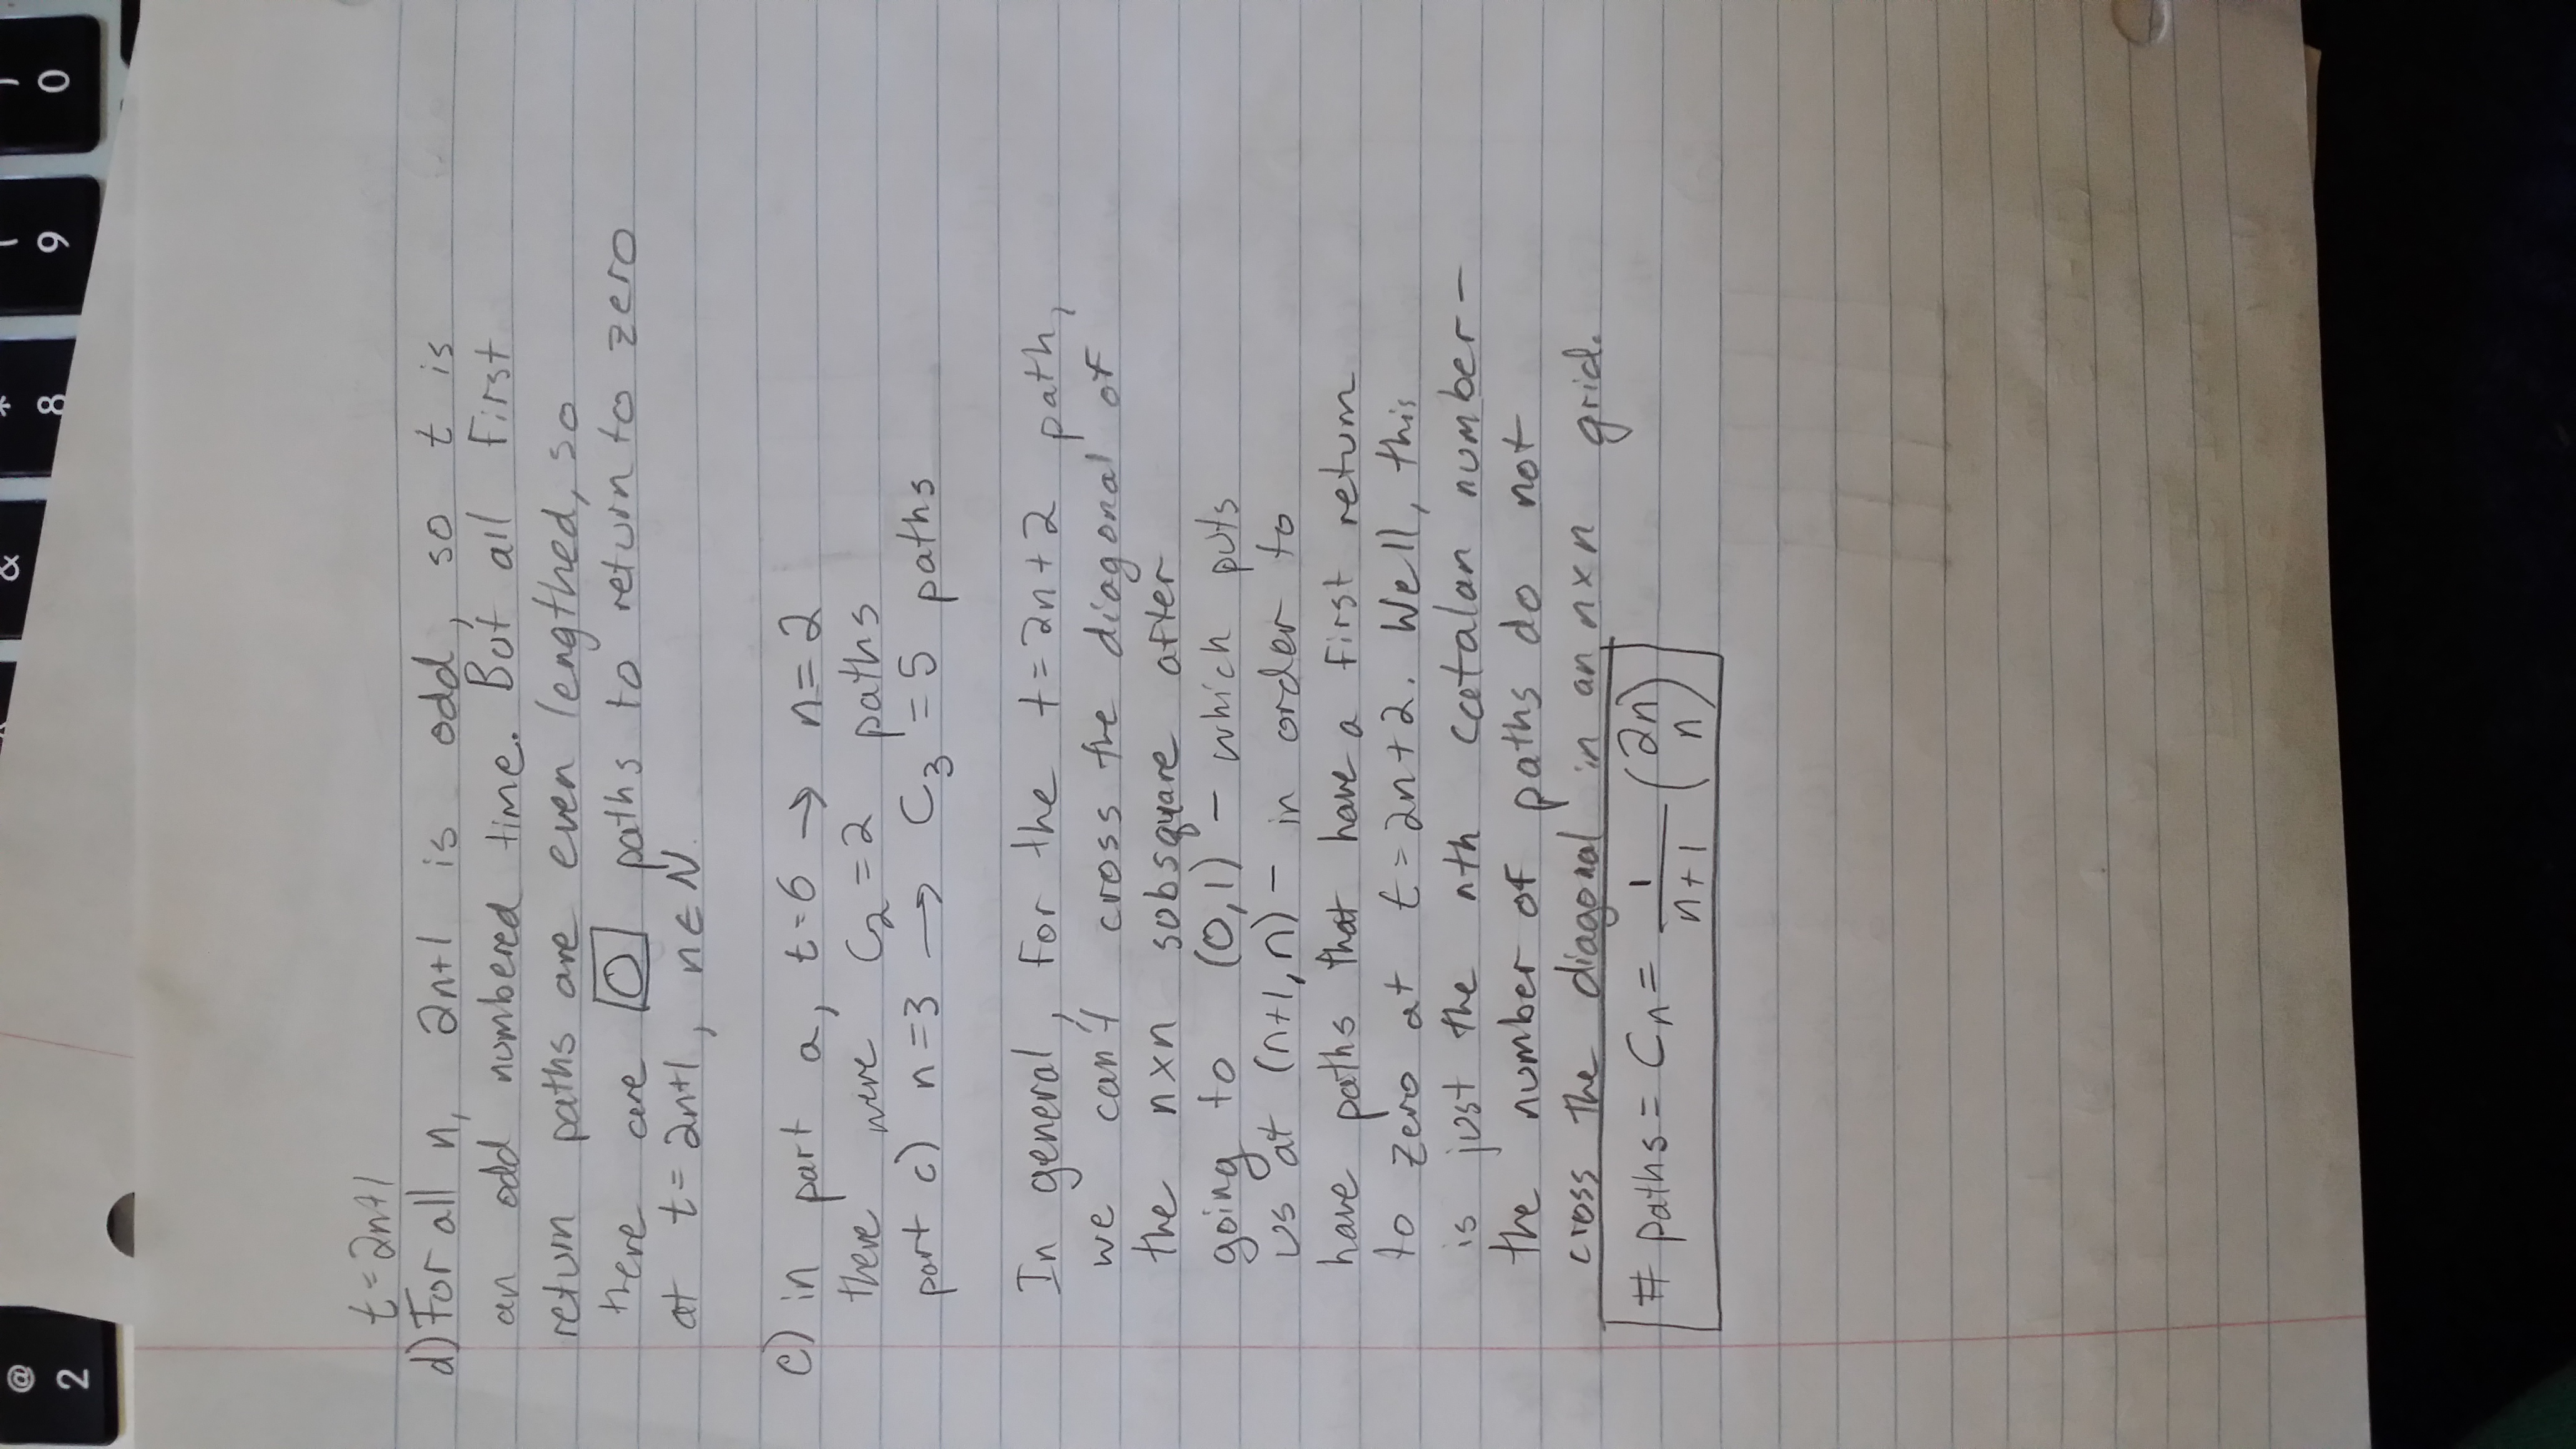 t=2n+1
d) For all n, 2n+1 is odd, so t is
an odd numbered time. But all first
return paths are even lengthed, so
there are 0 paths to return to zero
at t=2n+1, n∈N.
c) in part a, t=6 → n=2
there were C₂=2 paths
part c) n=3 → C₃=5 paths
In general, for the t=2n+2 path,
we can't cross the diagonal of
the n×n subsquare after
going to (0,1) - which puts
us at (n+1,n) - in order to
have paths that have a first return
to zero at t=2n+2. Well, this
is just the nth catalan number-
the number of paths do not
cross the diagonal in an n×n grid.
# paths = Cn = 1/(n+1) (2n n)
@ 2
&
* 8
9
0